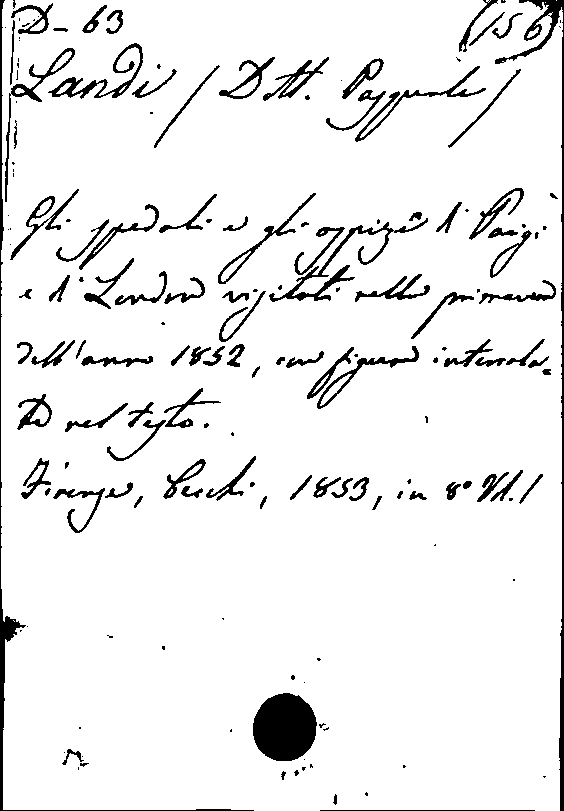 D- 63 (156)
Landi / Dott. Pasquale /
Gli spedali e gli ospizi di Parigi
e di Londra visitati nella primavera
dell'anno 1852, con figure intercala=
te nel testo.
Firenze, Cecchi, 1853, in 8° Vol. 1